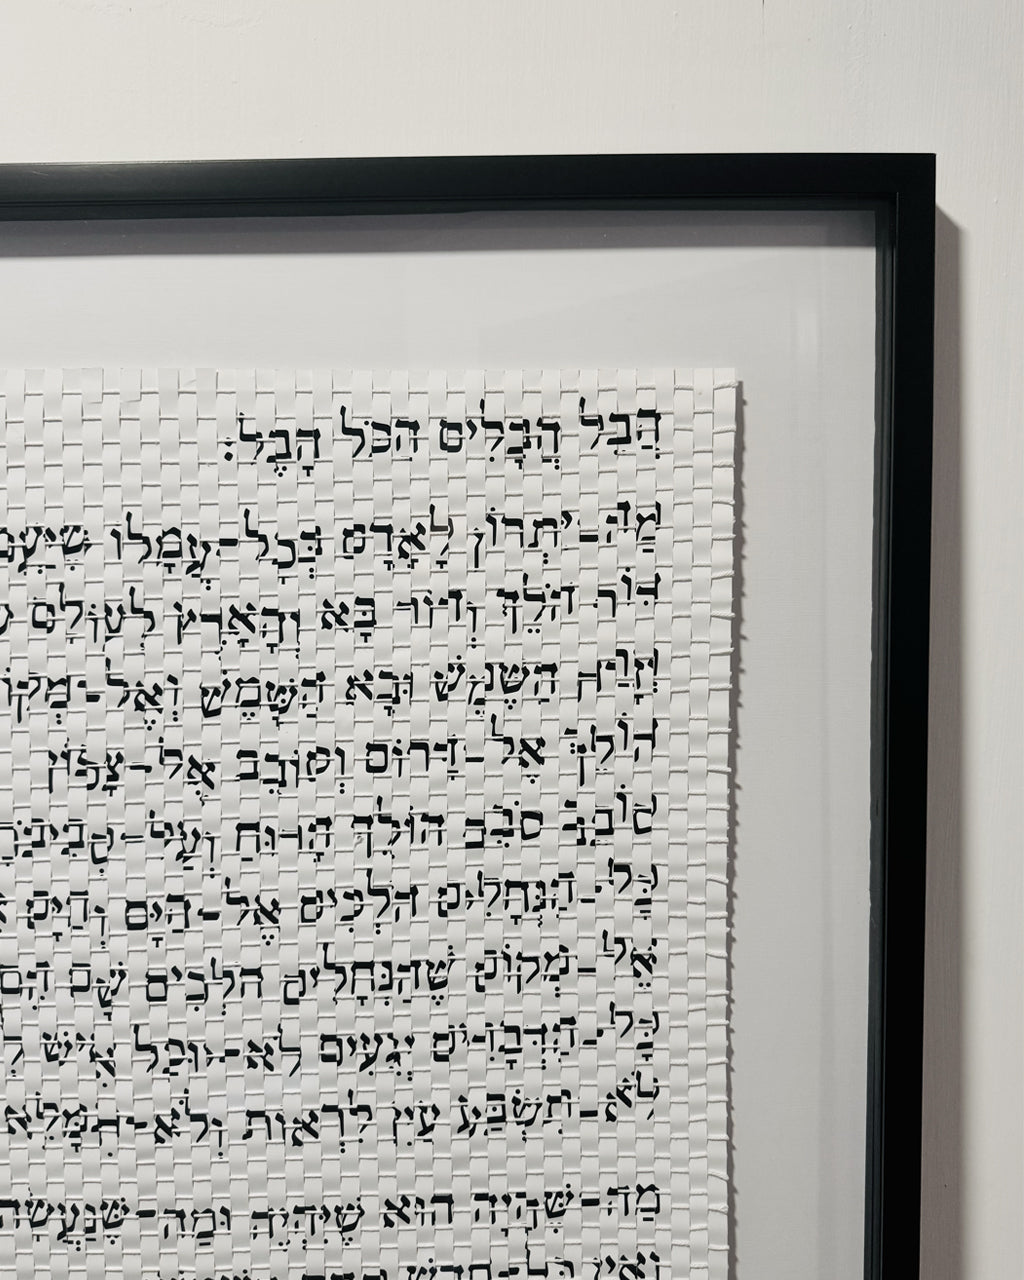 הֲבֵל הֲבָלִים הַכֹּל הָבֶל׃
מַה-יִּתְרוֹן לָאָדָם בְּכָל-עֲמָלוֹ
דּוֹר הֹלֵךְ וְדוֹר בָּא וְהָאָרֶץ לְעוֹלָם
וְזָרַח הַשֶּׁמֶשׁ וּבָא הַשָּׁמֶשׁ וְאֶל-מְקוֹ
הוֹלֵךְ אֶל-דָּרוֹם וְסוֹבֵב אֶל-צָפוֹן
סוֹבֵב סֹבֵב הוֹלֵךְ הָרוּחַ וְעַל-סְבִיבֹתָ
כָּל-הַנְּחָלִים הֹלְכִים אֶל-הַיָּם וְהַיָּם
אֶל-מְקוֹם שֶׁהַנְּחָלִים הֹלְכִים שָׁם הֵם
כָּל-הַדְּבָרִים יְגֵעִים לֹא-יוּכַל אִישׁ
לֹא-תִשְׂבַּע עַיִן לִרְאוֹת וְלֹא-תִמָּלֵא
מַה-שֶּׁהָיָה הוּא שֶׁיִּהְיֶה וּמַה-שֶּׁנַּעֲשָׂה
וְאֵין כָּל-חָדָשׁ